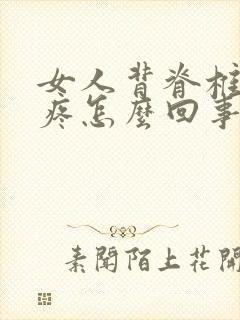 女人背脊柱
疼怎麽回事
素聞陌上花開